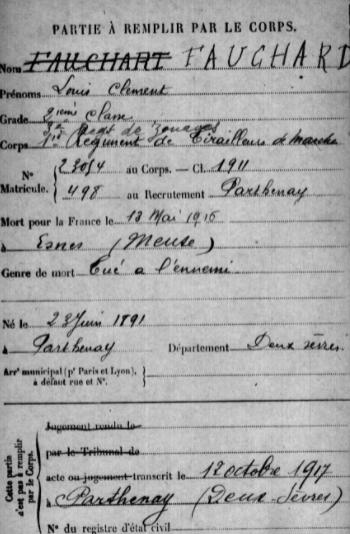 PARTIE À REMPLIR PAR LE CORPS.
Nom FAUCHART FAUCHARD
Prénoms Louis Clement
Grade 2ieme Classe
Regt de zouaves
Corps 1er Régiment de Tirailleurs de Marche
N° Matricule. { 23054 au Corps. — Cl. 1911
498 au Recrutement Parthenay
Mort pour la France le 18 Mai 1916
à Esnes (Meuse)
Genre de mort Tué a l'ennemi
Né le 23 Juin 1891
à Parthenay Département Deux sèvres
Arrt municipal (pr Paris et Lyon), à défaut rue et N°. }
Cette partie n'est pas à remplir par le Corps.
Jugement rendu le
par le Tribunal de
acte ou jugement transcrit le 12 octobre 1917
à Parthenay (Deux-Sèvres)
N° du registre d'état civil